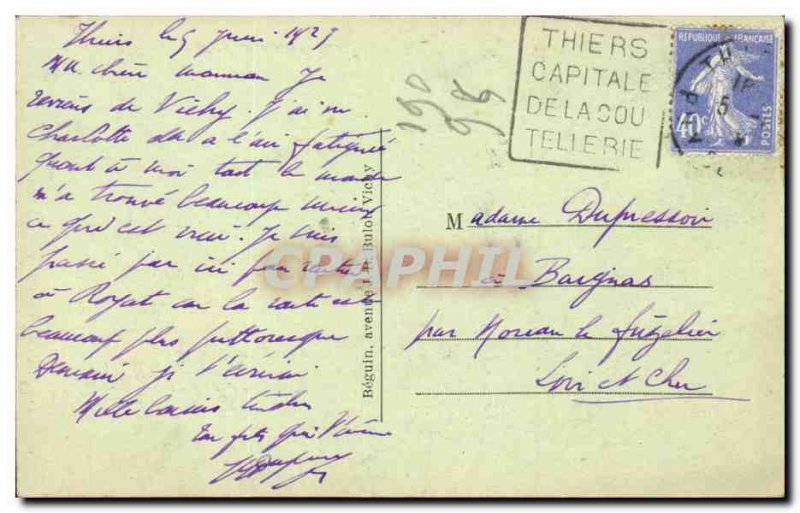 Thiers le 5 juin 1929
Ma chère maman Je
reviens de Vichy. J'ai vu
Charlotte elle a l'air fatiguée
quant à moi tout le monde
m'a trouvé beaucoup mieux
ce qui est vrai. Je suis
passé par ici pour rentrer
à Royat car la route est
beaucoup plus pittoresque
Demain je t'écrirai
Mille baisers tendres
Ton fils qui t'aime
190
THIERS
CAPITALE
DE LA COU
TELLERIE
REPUBLIQUE FRANÇAISE
40c
POSTES
Béguin, avenue J.-B. Bulot, Vichy
CPAPHIL
Madame Dupressoir
à Bargnas
par Moreau le fuzelier
Loir et Cher